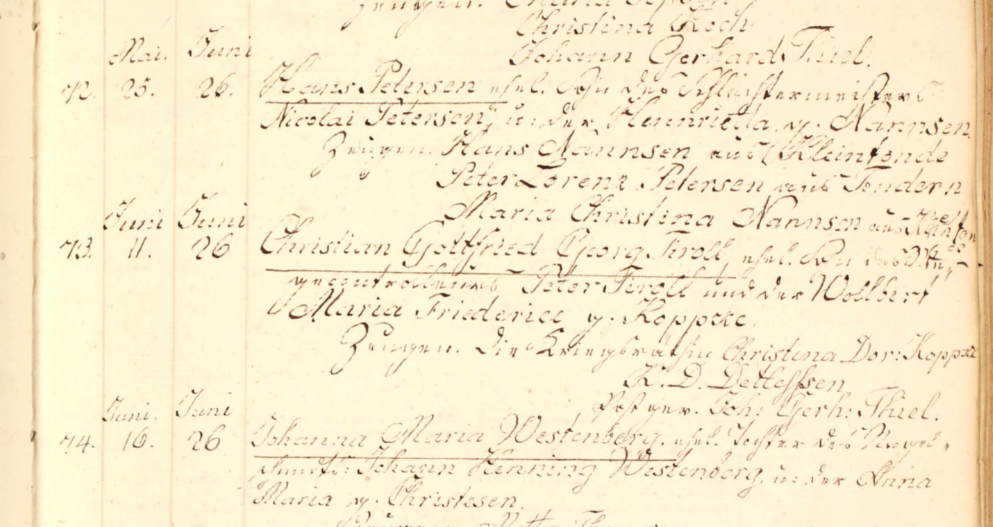 Zeugen. Maria
Christina Koch
Johann Gerhard Thiel.
Mai. Juni
72. 25. 26. Hans Petersen ehel. Sohn des Schlachtermeisters
Nicolai Petersen, u: der Hennrietta g. Nannsen.
Zeugen. Hans Nannsen aus Kleintonde
Peter Lorenz Petersen aus Tondern
Maria Christina Nannsen aus
Juni Juni
73. 11. 26 Christian Gottfried Georg Tiroll, ehel. Sohn des
Peter Tiroll und der Wolbert
Maria Friederice g. Koppcke.
Zeugen. die Kriegsräthin Christina Dor: Koppcke
K. D. Detlefsen
Joh: Gerh: Thiel.
Juni. Juni
74. 16. 26 Johanna Maria Westenberg. ehel. Tochter des
Johann Henning Westenberg, u: der Anna
Maria g. Christesen.